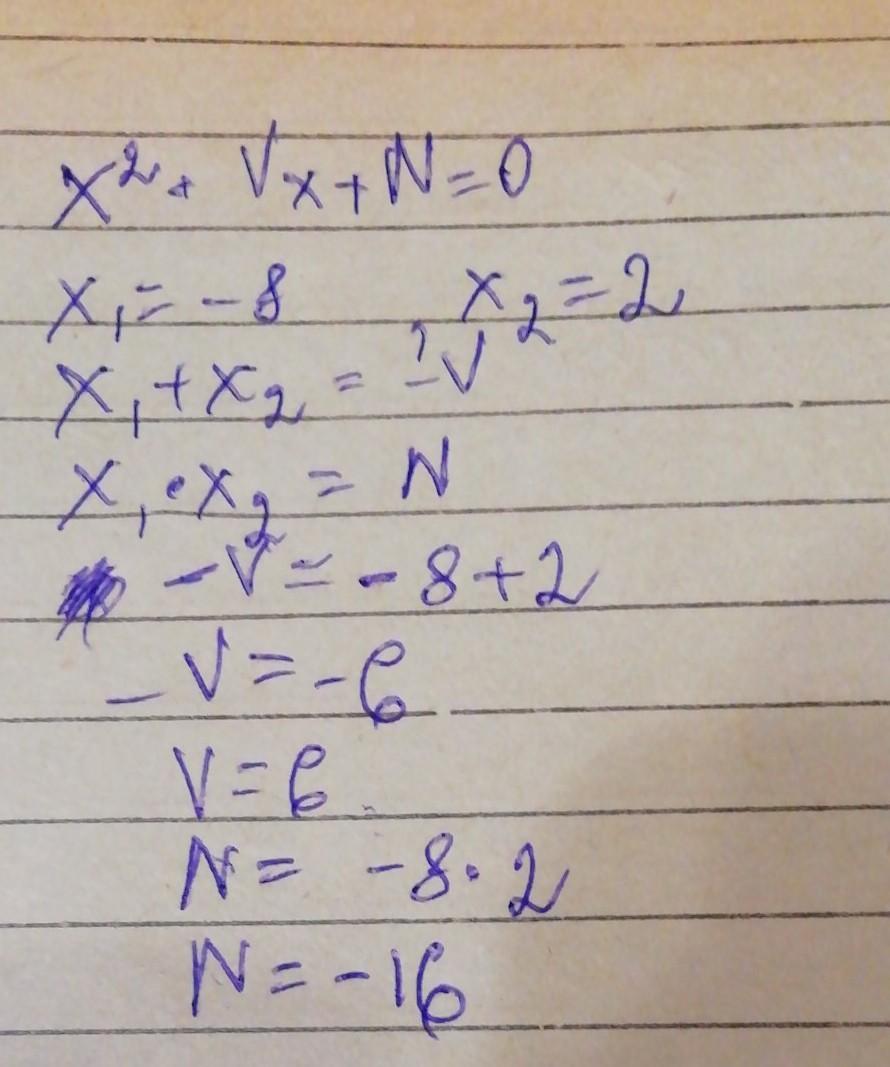 x² + Vx + N = 0
x₁ = -8 x₂ = 2
x₁ + x₂ = -V
x₁ · x₂ = N
-V = -8 + 2
-V = -6
V = 6
N = -8 · 2
N = -16